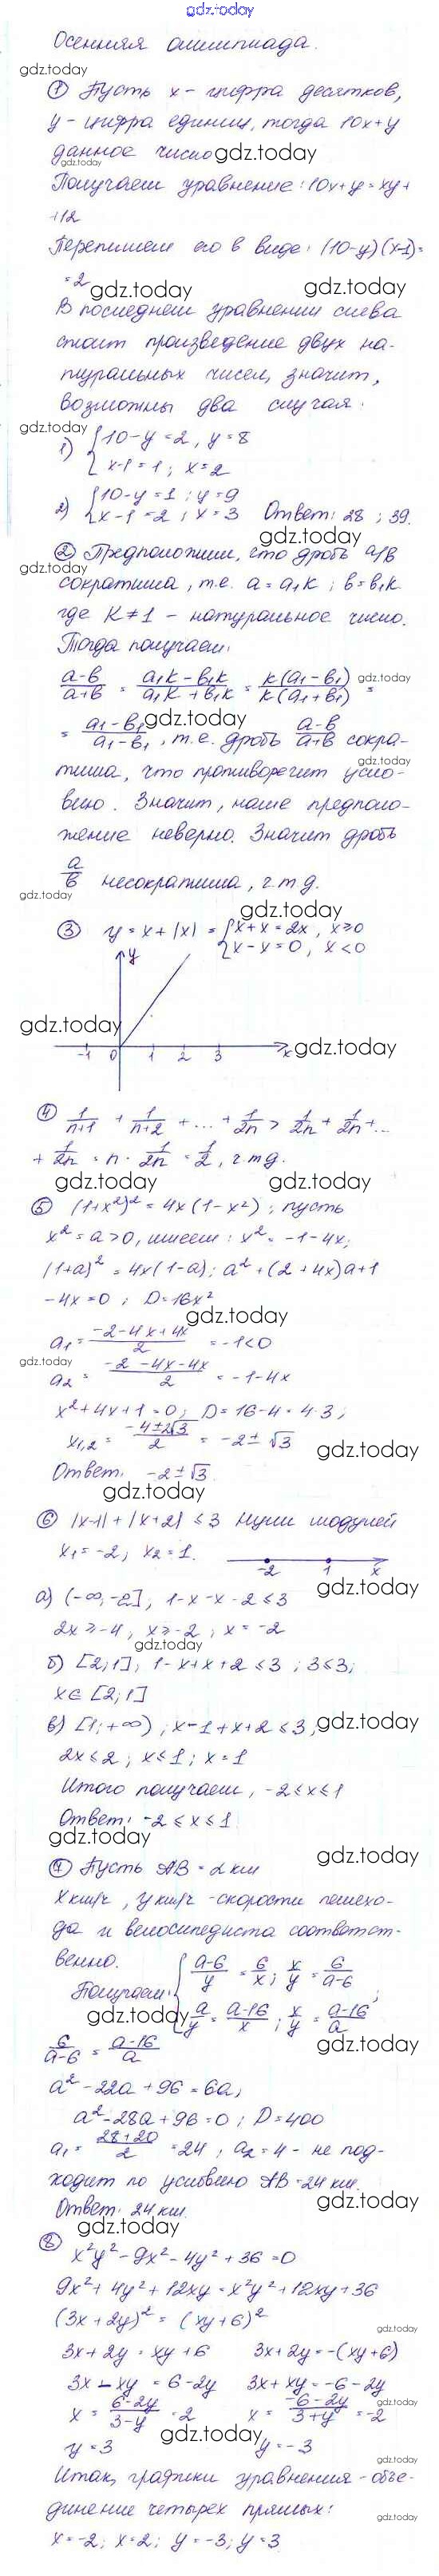 gdz.today
Осенняя олимпиада.
gdz.today
① Пусть x - цифра десятков,
y - цифра единиц, тогда 10x+y
данное число gdz.today
gdz.today
Получаем уравнение: 10x+y = xy+
+12
Перепишем его в виде: (10-y)(x-1)=
=2
gdz.today gdz.today
В последнем уравнении слева
стоит произведение двух на-
туральных чисел, значит,
возможны два случая.
gdz.today
1) {10-y=2, y=8
x-1=1; x=2
2) {10-y=1; y=9
x-1=2; x=3 Ответ: 28; 39.
gdz.today
② Предположим, что дробь a/b
gdz.today
сократима, т.е. a=a₁k; b=b₁k
где k≠1 - натуральное число.
Тогда получаем:
(a-b)/(a+b) = (a₁k-b₁k)/(a₁k+b₁k) = k(a₁-b₁)/k(a₁+b₁) =
gdz.today
= (a₁-b₁)/(a₁-b₁), т.е. дробь (a-b)/(a+b) сокра-
gdz.today
gdz.today
тима, что противоречит усло-
вию. Значит, наше предполо-
жение неверно. Значит дробь
a/b несократима, ч.т.д.
gdz.today
gdz.today
③ y = x+|x| = {x+x=2x, x≥0
x-x=0, x<0
y
gdz.today
-1 0 1 2 3 x
gdz.today
④ 1/(n+1) + 1/(n+2) + ... + 1/2n > 1/2n + 1/2n + ...
+ 1/2n = n · 1/2n = 1/2, ч.т.д.
gdz.today gdz.today
⑤ (1+x²)² = 4x(1-x²); пусть
x² = a > 0, имеем: x² = -1-4x;
(1+a)² = 4x(1-a); a²+(2+4x)a+1
-4x=0; D=16x²
gdz.today
a₁ = (-2-4x+4x)/2 = -1<0
gdz.today
a₂ = (-2-4x-4x)/2 = -1-4x
x²+4x+1=0; D=16-4=4·3;
x₁,₂ = (-4±2√3)/2 = -2±√3
gdz.today
Ответ: -2±√3
gdz.today
⑥ |x-1|+|x+2| ≤ 3 Нули модулей
x₁=-2; x₂=1.
-2 1 x
gdz.today
а) (-∞; -2], 1-x-x-2≤3
2x≥-4, x≥-2; x=-2
gdz.today
б) [2;1]; 1-x+x+2≤3; 3≤3;
x∈[2;1]
в) [1;+∞), x-1+x+2≤3,
gdz.today
2x≤2; x≤1; x=1
Итого получаем, -2≤x≤1
Ответ: -2≤x≤1
gdz.today
gdz.today
⑦ Пусть AB = a км
x км/ч, y км/ч - скорости пешехо-
да и велосипедиста соответст-
венно.
Получаем: {(a-6)/y = 6/x; x/y = 6/(a-6)
a/y = (a-16)/x; x/y = (a-16)/a;
gdz.today
gdz.today
6/(a-6) = (a-16)/a
a²-22a+96=6a;
a²-28a+96=0; D=400
a₁ = (28+20)/2 = 24; a₂=4 - не под-
ходит по условию AB=24 км.
gdz.today
Ответ: 24 км.
gdz.today
⑧ x²y²-9x²-4y²+36=0
9x²+4y²+12xy = x²y²+12xy+36
(3x+2y)² = (xy+6)²
gdz.today
3x+2y = xy+6 3x+2y = -(xy+6)
3x-xy = 6-2y 3x+xy = -6-2y
x = (6-2y)/(3-y) = 2 x = (-6-2y)/(3+y) = -2
gdz.today
gdz.today
y=3 y=-3
gdz.today
Итак, графики уравнения - объе-
динение четырех прямых:
gdz.today
x=-2; x=2; y=-3; y=3